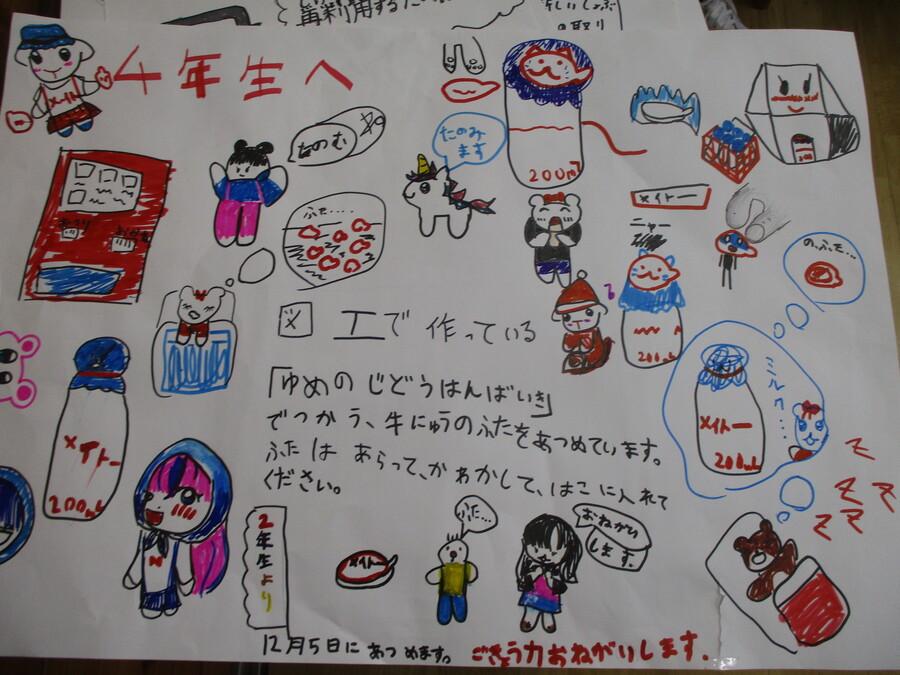 再利用する
の取り
メイト
4年生へ
たのむ
たのみ
ます
200ml
メイトー
ニャー
ふた……
の、ふた…
図工で作っている
「ゆめのじどうはんばいき」
でつかう、牛にゅうのふたをあつめています。
ふたはあらって、かわかして、はこに入れて
ください。
200ml
メイトー
200ml
ミルク…
メイトー
200ml
ZZZZZ
N
2年生より
メイトー
ふた…
おねがい
します。
12月5日にあつめます。
ごきょう力おねがいします。